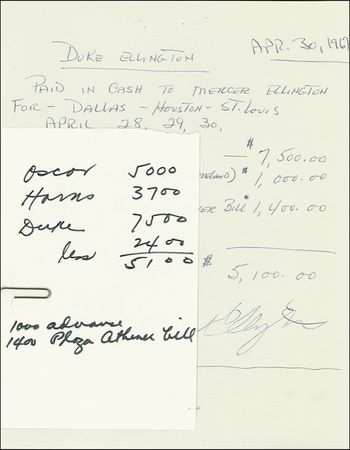 APR. 30, 1967
DUKE ELLINGTON
PAID IN CASH TO MERCER ELLINGTON
FOR - DALLAS - HOUSTON - ST. LOUIS
APRIL 28, 29, 30,
— $ 7,500.00
) $ 1,000.00
BILL $ 1,400.00
$ 5,100.00
Oscar 5000
Harns 3700
Duke 7500
less 2400
5100
1000 advance
1400 Plaza Athenee bill